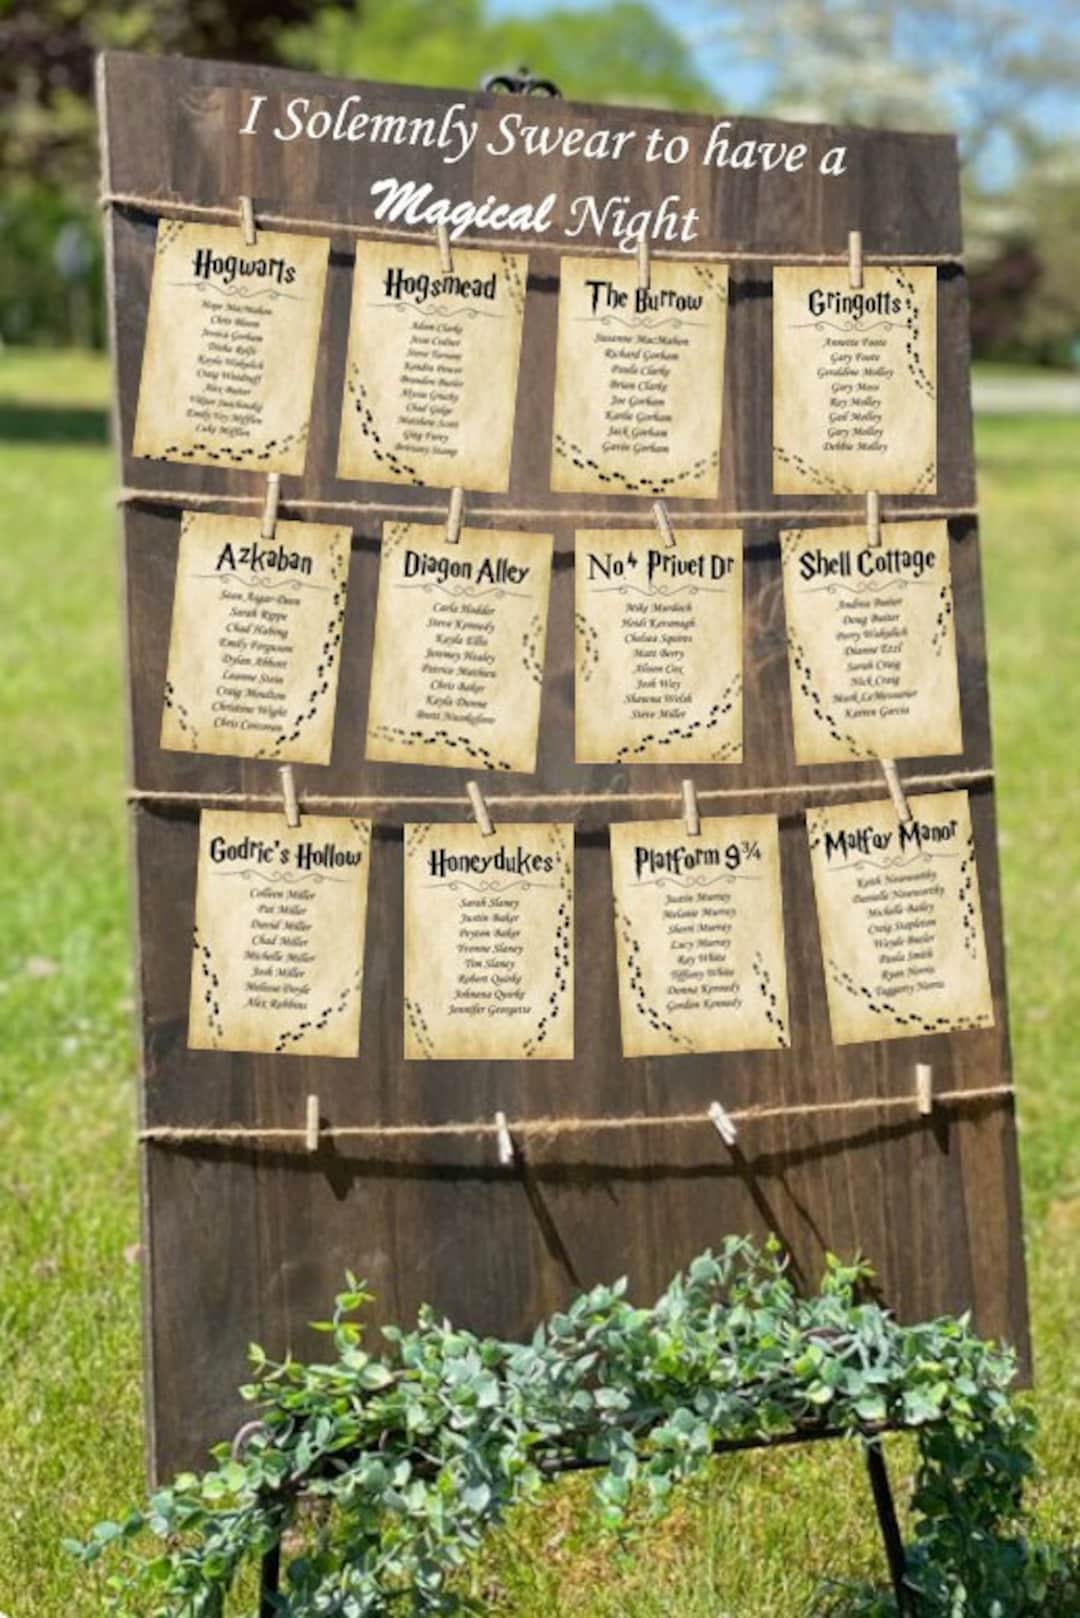 I Solemnly Swear to have a
Magical Night
Hogwarts
Hope MacMahon
Chris Bloom
Jessica Gorham
Disha Rolfe
Kayla Wakplich
Craig Woodruff
Alex Butter
Emily Foy Mifflen
Luke Mifflen
Hogsmead
Adam Clarke
Steve Farrant
Kendra Power
Brandon Butler
Chad Gulge
Matthew Scott
Greg Furey
Brittany Stamp
The Burrow
Susanne MacMahon
Richard Gorham
Paula Clarke
Brian Clarke
Joe Gorham
Karlie Gorham
Jack Gorham
Gavin Gorham
Gringotts
Annette Foote
Gary Foote
Geraldine Molley
Gary Moss
Ray Molley
Gail Molley
Gary Molley
Debbie Molley
Azkaban
Sarah Rippe
Chad Habing
Emily Ferguson
Dylan Abbott
Leanne Stein
Craig Moulton
Christine Wight
Chris Corcoran
Diagon Alley
Carla Hodder
Steve Kennedy
Kayla Ellis
Jeremey Healey
Patrice Matthieu
Chris Baker
Kayla Dunne
Brett
No4 Privet Dr
Mike Murdoch
Heidi Kavanagh
Chelsea Squires
Matt Berry
Alison Cox
Josh Way
Shawna Welsh
Steve Miller
Shell Cottage
Andrea Butter
Doug Butter
Perry Wakplich
Dianne Ezzl
Sarah Craig
Nick Craig
Mark LeMessurier
Karren Garcia
Godric's Hollow
Colleen Miller
Pat Miller
David Miller
Chad Miller
Michelle Miller
Josh Miller
Melissa Doyle
Alex Robbins
Honeydukes
Sarah Slaney
Justin Baker
Peyton Baker
Yvonne Slaney
Tim Slaney
Robert Quirke
Johnena Quirke
Jennifer Georgette
Platform 9¾
Justin Murray
Melanie Murray
Sherri Murray
Lucy Murray
Ray White
Tiffany White
Donna Kennedy
Gordon Kennedy
Malfoy Manor
Keith Noseworthy
Danielle Noseworthy
Michelle Bailey
Craig Stapleton
Wayde Butler
Paula Smith
Ryan Norris
Taggarty Norris